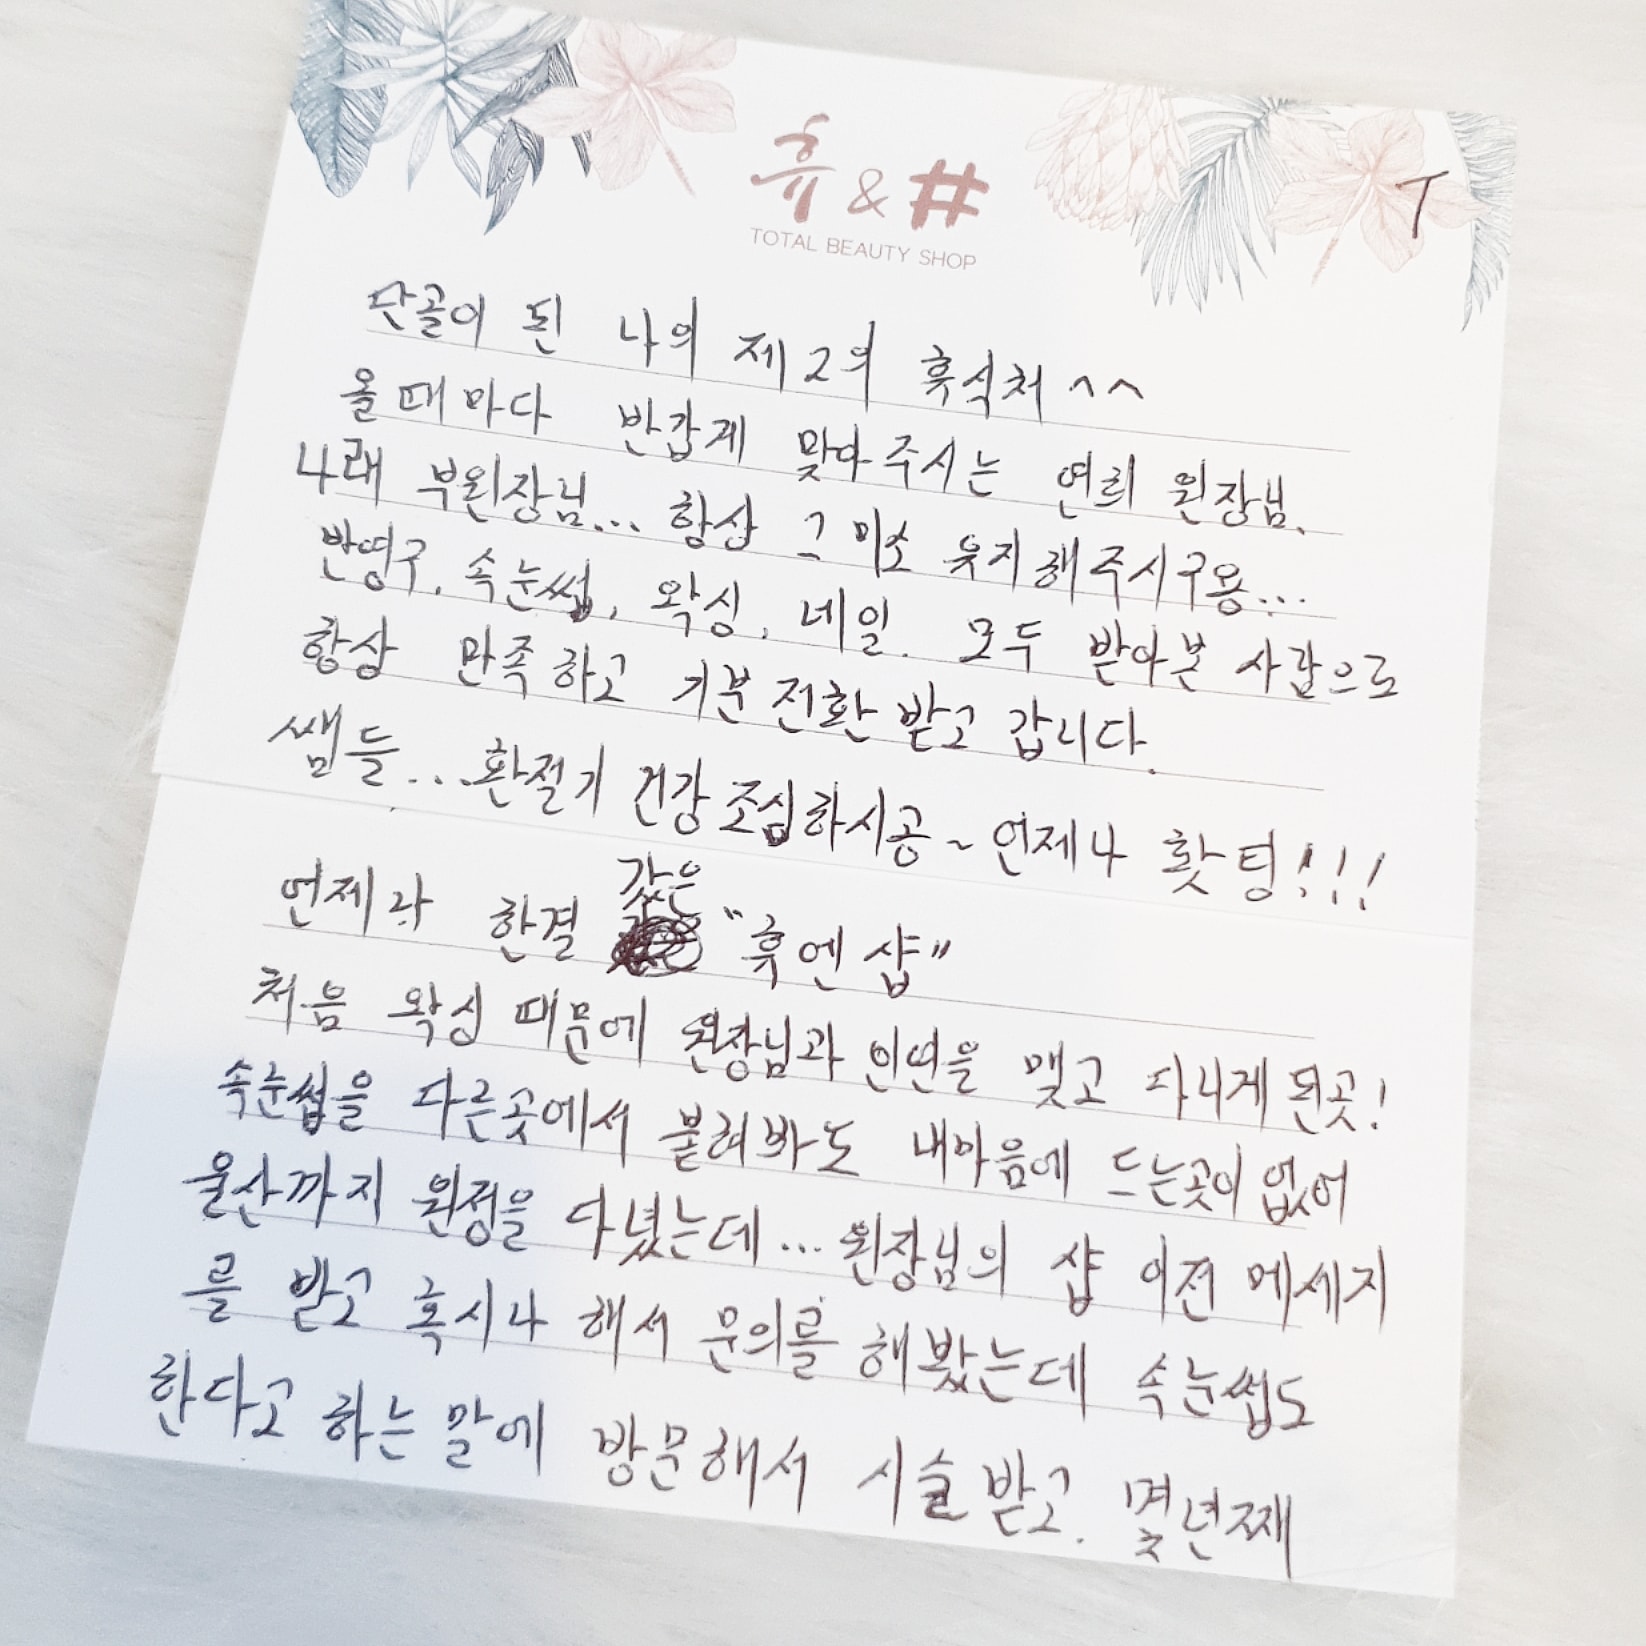 휴 & #
TOTAL BEAUTY SHOP
T
단골이 된 나의 제2의 휴식처^^
올때마다 반갑게 맞아주시는 연희 원장님.
나래 부원장님... 항상 그 미소 유지해주시구용...
반영구, 속눈썹, 왁싱, 네일. 모두 받아본 사람으로
항상 만족하고 기분전환 받고 갑니다.
쌤들... 환절기 건강조심하시공~ 언제나 홧팅!!!
언제나 한결 같은 "휴엔샵"
처음 왁싱 때문에 원장님과 인연을 맺고 다니게된곳!
속눈썹을 다른곳에서 붙혀봐도 내마음에 드는곳이 없어
울산까지 원정을 다녔는데... 원장님의 샵 이전 메세지
를 받고 혹시나 해서 문의를 해봤는데 속눈썹도
한다고 하는 말에 방문해서 시술받고. 몇년째